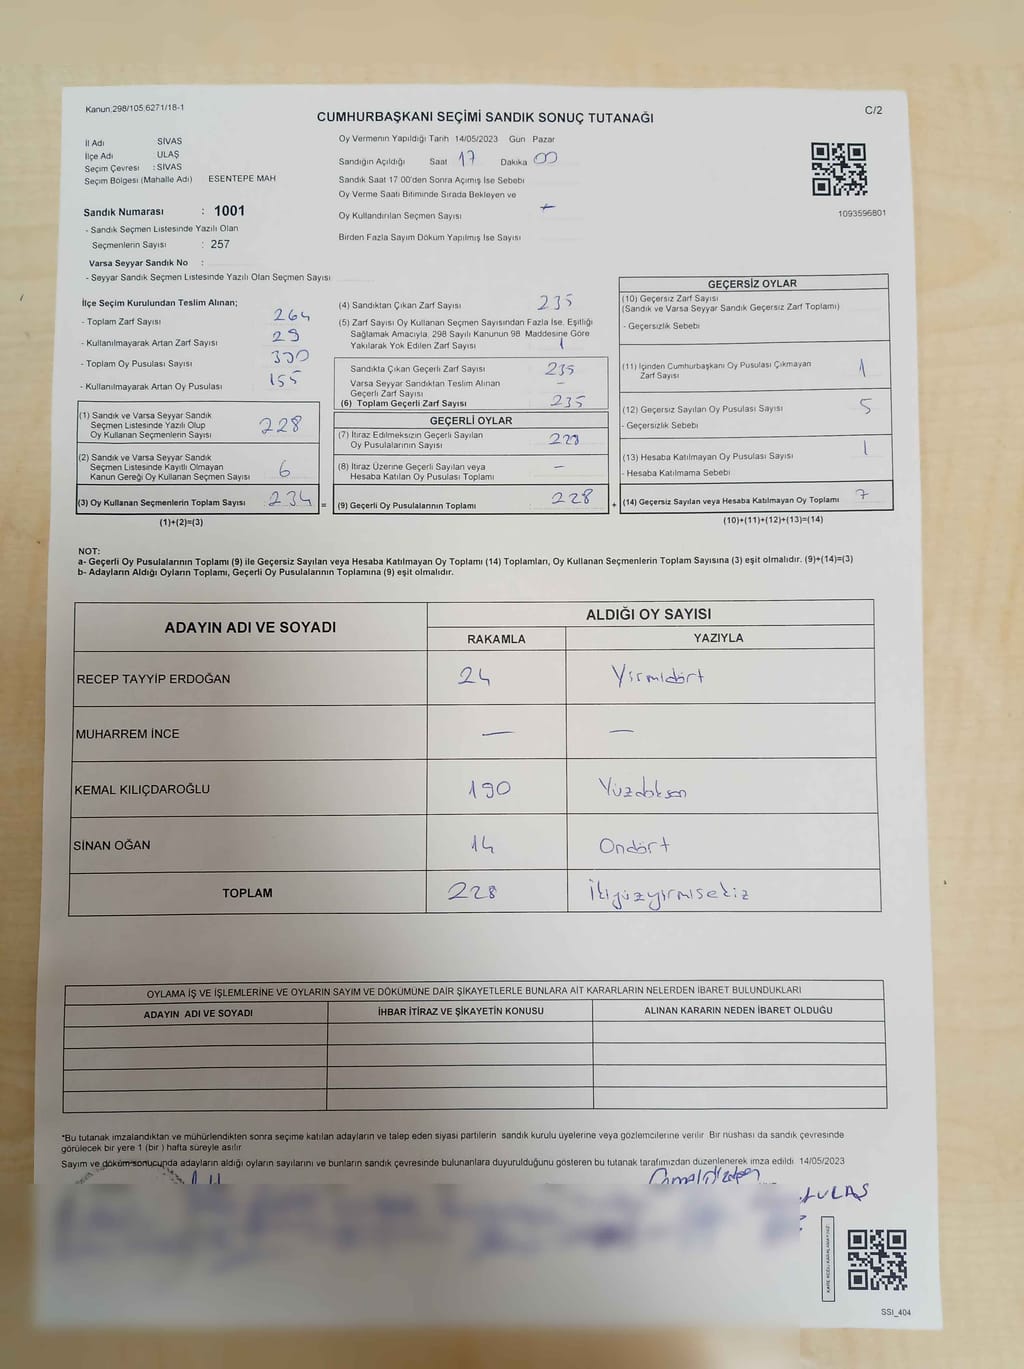 Kanun;298/105;6271/18-1
C/2
CUMHURBAŞKANI SEÇİMİ SANDIK SONUÇ TUTANAĞI
İl Adı SİVAS
İlçe Adı ULAŞ
Seçim Çevresi : SİVAS
Seçim Bölgesi (Mahalle Adı) ESENTEPE MAH
Oy Vermenin Yapıldığı Tarih 14/05/2023 Gün Pazar
Sandığın Açıldığı Saat 17 Dakika 00
Sandık Saat 17 00'den Sonra Açımış İse Sebebi
Oy Verme Saati Bitiminde Sırada Bekleyen ve
Oy Kullandırılan Seçmen Sayısı
Birden Fazla Sayım Döküm Yapılmış İse Sayısı
1093596801
Sandık Numarası : 1001
- Sandık Seçmen Listesinde Yazılı Olan
Seçmenlerin Sayısı : 257
Varsa Seyyar Sandık No :
- Seyyar Sandık Seçmen Listesinde Yazılı Olan Seçmen Sayısı
İlçe Seçim Kurulundan Teslim Alınan;
- Toplam Zarf Sayısı 264
- Kullanılmayarak Artan Zarf Sayısı 29
- Toplam Oy Pusulası Sayısı
- Kullanılmayarak Artan Oy Pusulası 155
(1) Sandık ve Varsa Seyyar Sandık
Seçmen Listesinde Yazılı Olup
Oy Kullanan Seçmenlerin Sayısı 228
(2) Sandık ve Varsa Seyyar Sandık
Seçmen Listesinde Kayıtlı Olmayan
Kanun Gereği Oy Kullanan Seçmen Sayısı 6
(3) Oy Kullanan Seçmenlerin Toplam Sayısı 234 =
(1)+(2)=(3)
(4) Sandıktan Çıkan Zarf Sayısı 235
(5) Zarf Sayısı Oy Kullanan Seçmen Sayısından Fazla İse, Eşitliği
Sağlamak Amacıyla, 298 Sayılı Kanunun 98 Maddesine Göre
Yakılarak Yok Edilen Zarf Sayısı 1
Sandıkta Çıkan Geçerli Zarf Sayısı 235
Varsa Seyyar Sandıktan Teslim Alınan
Geçerli Zarf Sayısı –
(6) Toplam Geçerli Zarf Sayısı 235
GEÇERLİ OYLAR
(7) İtiraz Edilmeksizin Geçerli Sayılan
Oy Pusulalarının Sayısı 228
(8) İtiraz Üzerine Geçerli Sayılan veya
Hesaba Katılan Oy Pusulası Toplamı –
(9) Geçerli Oy Pusulalarının Toplamı 228 +
GEÇERSİZ OYLAR
(10) Geçersiz Zarf Sayısı
(Sandık ve Varsa Seyyar Sandık Geçersiz Zarf Toplamı)
- Geçersizlik Sebebi
(11) İçinden Cumhurbaşkanı Oy Pusulası Çıkmayan
Zarf Sayısı 1
(12) Geçersiz Sayılan Oy Pusulası Sayısı 5
- Geçersizlik Sebebi
(13) Hesaba Katılmayan Oy Pusulası Sayısı 1
- Hesaba Katılmama Sebebi
(14) Geçersiz Sayılan veya Hesaba Katılmayan Oy Toplamı 7
(10)+(11)+(12)+(13)=(14)
NOT:
a- Geçerli Oy Pusulalarının Toplamı (9) ile Geçersiz Sayılan veya Hesaba Katılmayan Oy Toplamı (14) Toplamları, Oy Kullanan Seçmenlerin Toplam Sayısına (3) eşit olmalıdır. (9)+(14)=(3)
b- Adayların Aldığı Oyların Toplamı, Geçerli Oy Pusulalarının Toplamına (9) eşit olmalıdır.
ADAYIN ADI VE SOYADI ALDIĞI OY SAYISI
RAKAMLA YAZIYLA
RECEP TAYYİP ERDOĞAN 24 Yirmidört
MUHARREM İNCE — —
KEMAL KILIÇDAROĞLU 190 Yüzdoksan
SİNAN OĞAN 14 Ondört
TOPLAM 228 İkiyüzyirmisekiz
OYLAMA İŞ VE İŞLEMLERİNE VE OYLARIN SAYIM VE DÖKÜMÜNE DAİR ŞİKAYETLERLE BUNLARA AİT KARARLARIN NELERDEN İBARET BULUNDUKLARI
ADAYIN ADI VE SOYADI İHBAR İTİRAZ VE ŞİKAYETİN KONUSU ALINAN KARARIN NEDEN İBARET OLDUĞU
*Bu tutanak imzalandıktan ve mühürlendikten sonra seçime katılan adayların ve talep eden siyasi partilerin sandık kurulu üyelerine veya gözlemcilerine verilir Bir nüshası da sandık çevresinde
görülecek bir yere 1 (bir ) hafta süreyle asılır
Sayım ve döküm sonucunda adayların aldığı oyların sayılarını ve bunların sandık çevresinde bulunanlara duyurulduğunu gösteren bu tutanak tarafımızdan düzenlenerek imza edildi 14/05/2023
ULAŞ
SSI_404